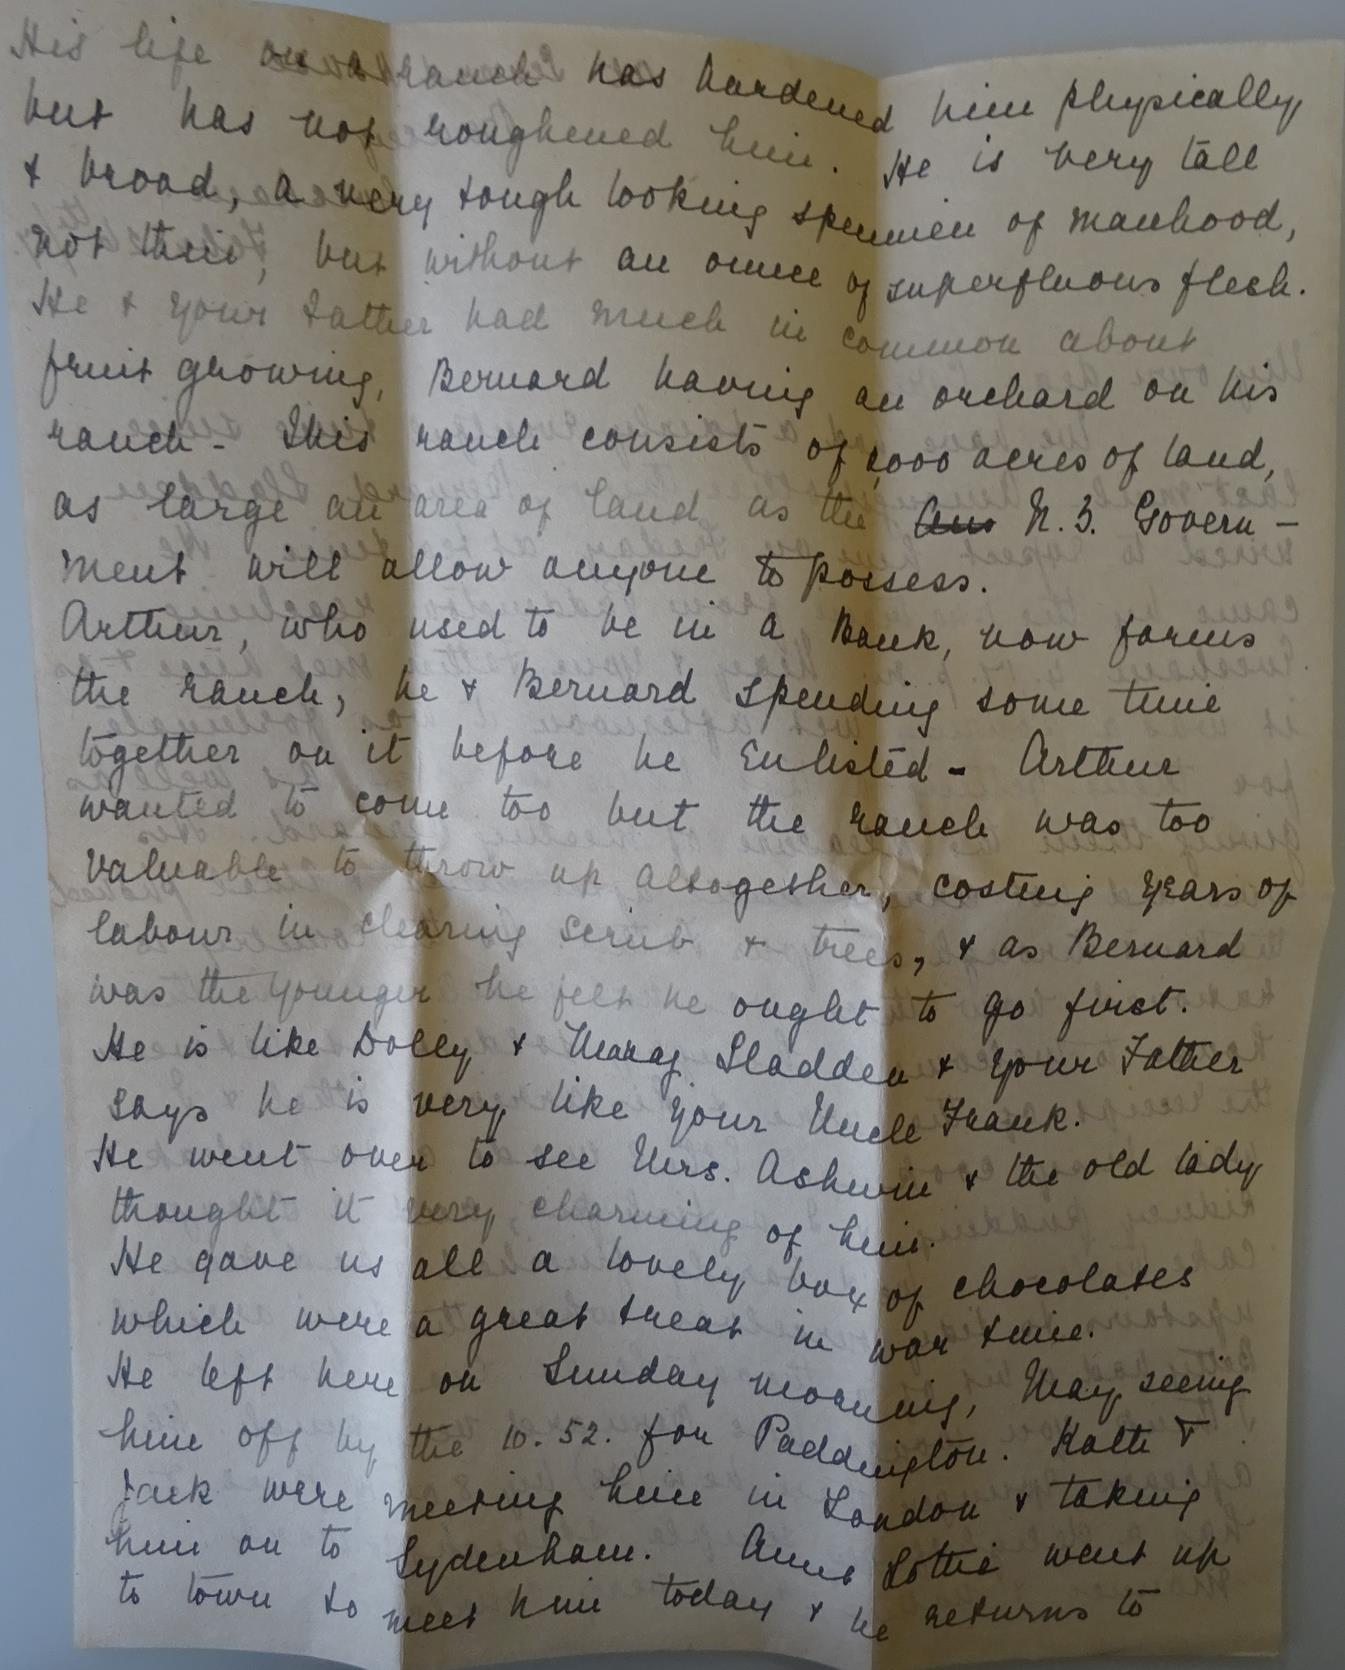 His life on a ranch has hardened him physically,
but has not roughened him. He is very tall
& broad, a very tough looking specimen of manhood,
not thin, but without an ounce of superfluous flesh.
He & your Father had much in common about
fruit growing, Bernard having an orchard on his
ranch - This ranch consists of 1,000 acres of land,
as large an area of land as the N. Z. Govern-
ment will allow anyone to possess.
Arthur, who used to be in a Bank, now farms
the ranch, he & Bernard spending some time
together on it before he enlisted - Arthur
wanted to come too but the ranch was too
valuable to throw up altogether, costing years of
labour in clearing scrub & trees, & as Bernard
was the younger he felt he ought to go first.
He is like Dolly & Mary Sladden & your Father
says he is very like your Uncle Frank.
He went over to see Mrs. Ashwin & the old lady
thought it very charming of him.
He gave us all a lovely box of chocolates
which were a great treat in war time.
He left here on Sunday morning, May seeing
him off by the 10.52. for Paddington. Kath &
Jack were meeting him in London & taking
him on to Sydenham. Aunt Lottie went up
to town to meet him today & he returns to